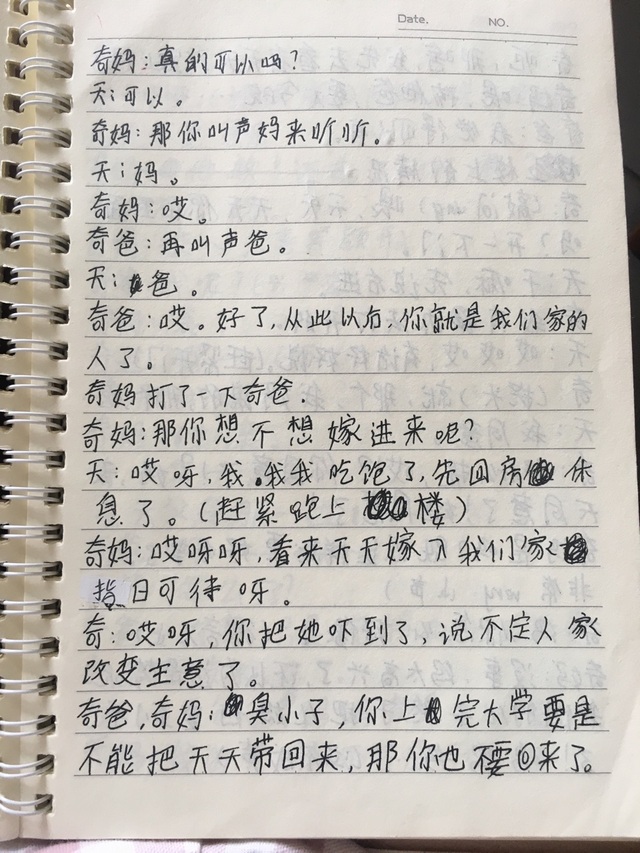 Date.	NO.
奇妈:真的可以吗?
天:可以。
奇妈:那你叫声妈来听听。
天:妈。
奇妈:哎。
奇爸:再叫声爸。
天:爸。
奇爸:哎。好了,从此以后,你就是我们家的
人了。
奇妈打了一下奇爸.
奇妈:那你想不想嫁进来呢?
天:哎呀,我.我我吃饱了,先回房休
息了。(赶紧跑上楼)
奇妈:哎呀呀,看来天天嫁入我们家
指日可待呀。
奇:哎呀,你把她吓到了,说不定人家
改变主意了。
奇爸,奇妈:臭小子,你上完大学要是
不能把天天带回来,那你也不要回来了。